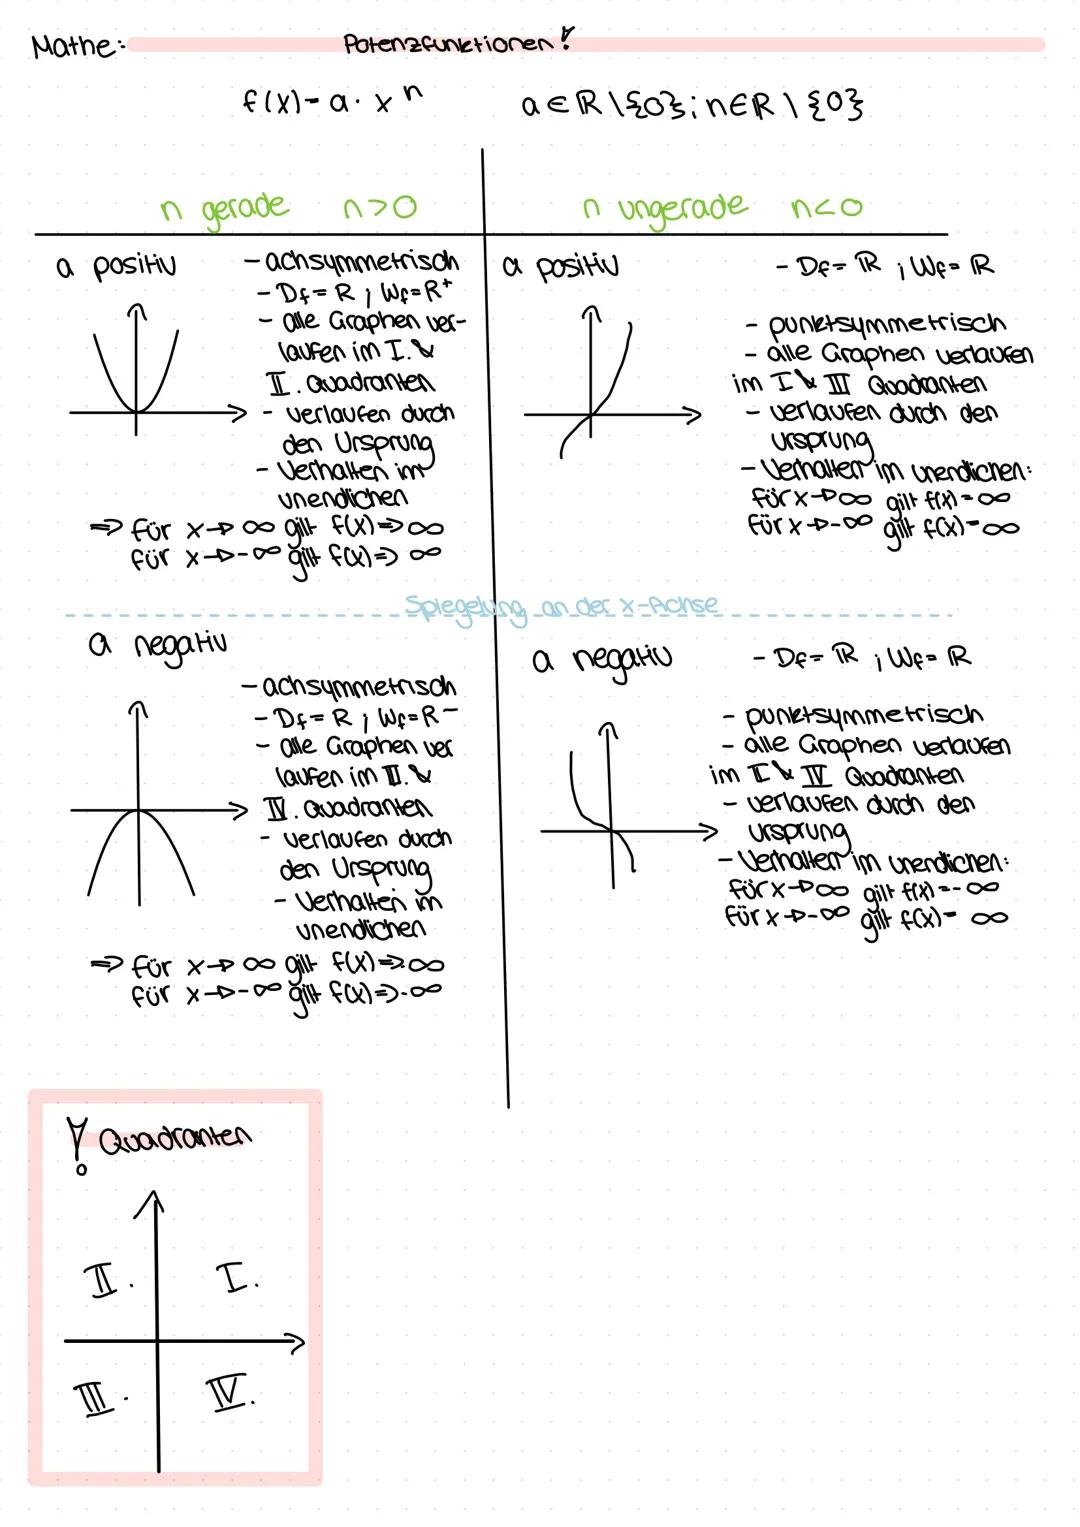 Mathe:
Potenzfunktionen!
f(x)= a · x^n
a ∈ ℝ \ {0}; n ∈ ℝ \ {0}
n gerade n>0
n ungerade n<0
a positiv
- achsymmetrisch
- Df = ℝ ; Wf = ℝ⁺
- alle Graphen ver-
laufen im I. &
II. Quadranten
- verlaufen durch
den Ursprung
- Verhalten im
unendlichen
=> für x→ ∞ gilt f(x)=>∞
für x→-∞ gilt f(x)=> ∞
a positiv
- Df= ℝ ; Wf= ℝ
- punktsymmetrisch
- alle Graphen verlaufen
im I & III Quadranten
- verlaufen durch den
ursprung
- Verhalten im unendlichen:
für x→∞ gilt f(x)=∞
für x→-∞ gilt f(x)=-∞
Spiegelung an der x-Achse
a negativ
- achsymmetrisch
- Df = ℝ ; Wf = ℝ⁻
- alle Graphen ver
laufen im III. &
IV. Quadranten
- verlaufen durch
den Ursprung
- Verhalten im
unendlichen
=> für x→ ∞ gilt f(x)=>-∞
für x→-∞ gilt f(x)=>-∞
a negativ
- Df= ℝ ; Wf= ℝ
- punktsymmetrisch
- alle Graphen verlaufen
im II & IV Quadranten
- verlaufen durch den
ursprung
- Verhalten im unendlichen:
für x→∞ gilt f(x)=-∞
für x→-∞ gilt f(x)= ∞
! Quadranten
II. I.
III. IV.